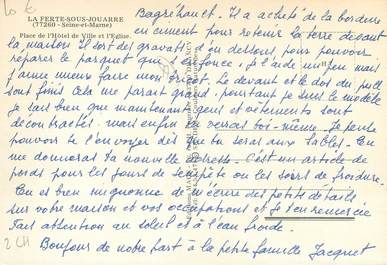 LA FERTE-SOUS-JOUARRE
(77260 - Seine-et-Marne)
Place de l'Hôtel de Ville et l'Eglise.
Il a acheté de la bordure
en ciment pour retenir la terre devant
la maison Il sort des gravats d'en dessous pour pouvoir
réparer le parquet que s'enfonce. Je l'aide un peu mais
j'aime mieux faire mon tricot. Le devant et le dos du pull
sont finis Cela me parait grand. pourtant je suis le modèle
Je sais bien que maintenant gens et vêtements sont
décontractés. mais enfin tu verras toi-même. Je pense
pouvoir te l'envoyer dès que tu seras aux Sables. Tu
me donneras ta nouvelle adresse. C'est un article de
poids pour les jours de tempête ou les soirs de froidure.
Tu es bien mignonne de m'écrire des petits détails
sur votre maison et vos occupations et je t'en remercie
Fais attention au soleil et à l'eau froide.
Bonjour de notre part à la petite famille Jacquet